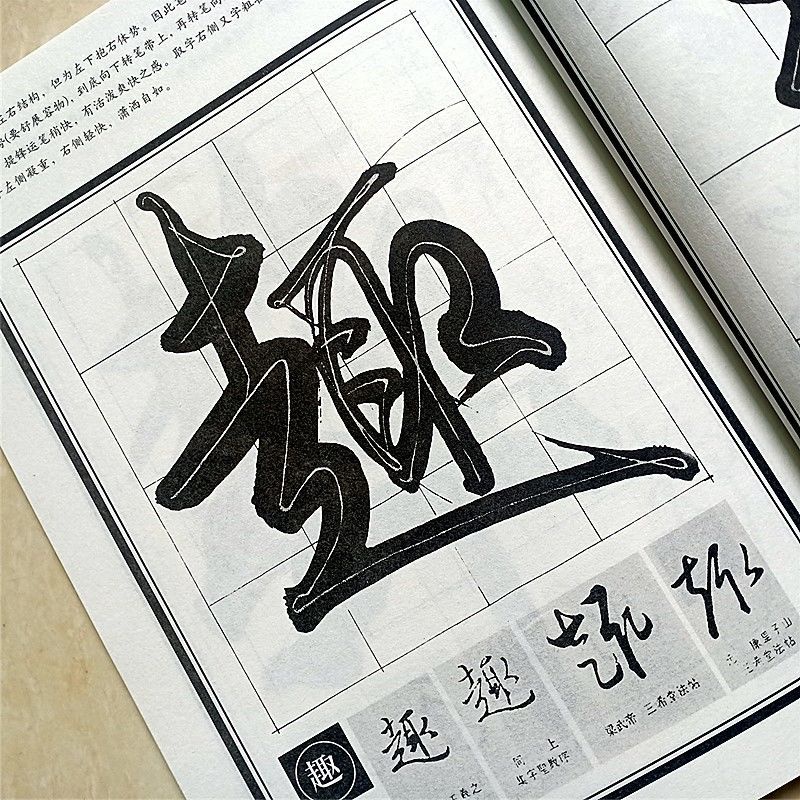 左右结构，但为左下抱右体势。因此
(要舒展容物)，到底向下转笔带上，再转笔向
提锋运笔稍快，有活泼爽快之感。取字右侧又字粗
左侧凝重，右侧轻快，潇洒自如。
趣
趣
趣
王羲之
趣
同 上
集字圣教序
趣
梁武帝 三希堂法帖
趣
元 康里子山
三希堂法帖